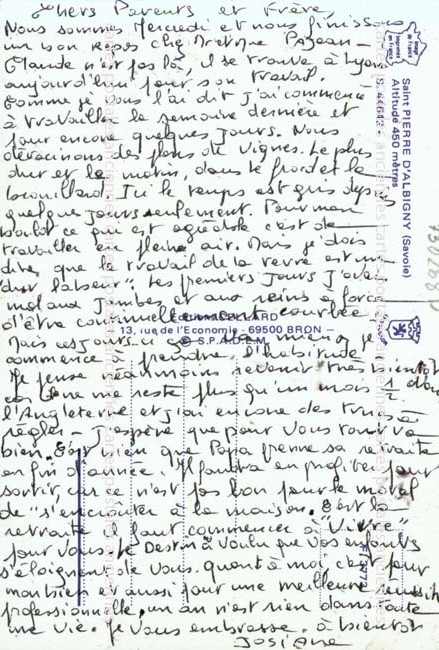 Chers Parents et Frère,
Nous sommes Mercredi et nous finissons
un bon repas chez Pagean –
Claude n'est pas là, il se trouve à Lyon
aujourd'hui pour son travail.
Comme je vous l'ai dit j'ai commencé
à travailler la semaine dernière et
pour encore quelques jours. Nous
des de Vignes. Le plus
dur est le matin, dans le froid et le
brouillard. Ici le temps est gris depuis
quelques jours seulement. Pour mon
boulot ce qui est agréable c'est de
travailler en pleine air. Mais je dois
dire que le travail de la terre est un
"dur labeur". Les premiers jours j'avais
mal aux jambes et aux reins à force
d'être continuellement courbée
Mais ces jours-ci mieux, je
commence à prendre l'habitude
Je pense néanmoins revenir très bientôt
car il ne me reste plus qu'un mois dans
l'Angleterre et j'ai encore des trucs à
régler – J'espère que pour vous tout va
bien. C'est bien que Papa prenne sa retraite
en fin d'année. Il faudra en profiter pour
sortir, car ce n'est pas bon pour le moral
de "s'encroûter" à la maison. C'est la
retraite il faut commencer à "Vivre"
pour vous. Le Destin a voulu que vos enfants
s'éloignent de vous. quant à moi c'est pour
mon bien et aussi pour une meilleure réussite
professionnelle, un an n'est rien dans toute
une vie. Je vous embrasse. à bientôt
Josiane
Saint PIERRE D'ALBIGNY (Savoie)
Altitude 450 mètres
13, rue de l'Economie - 69500 BRON -
S.P.A.D.E.M.